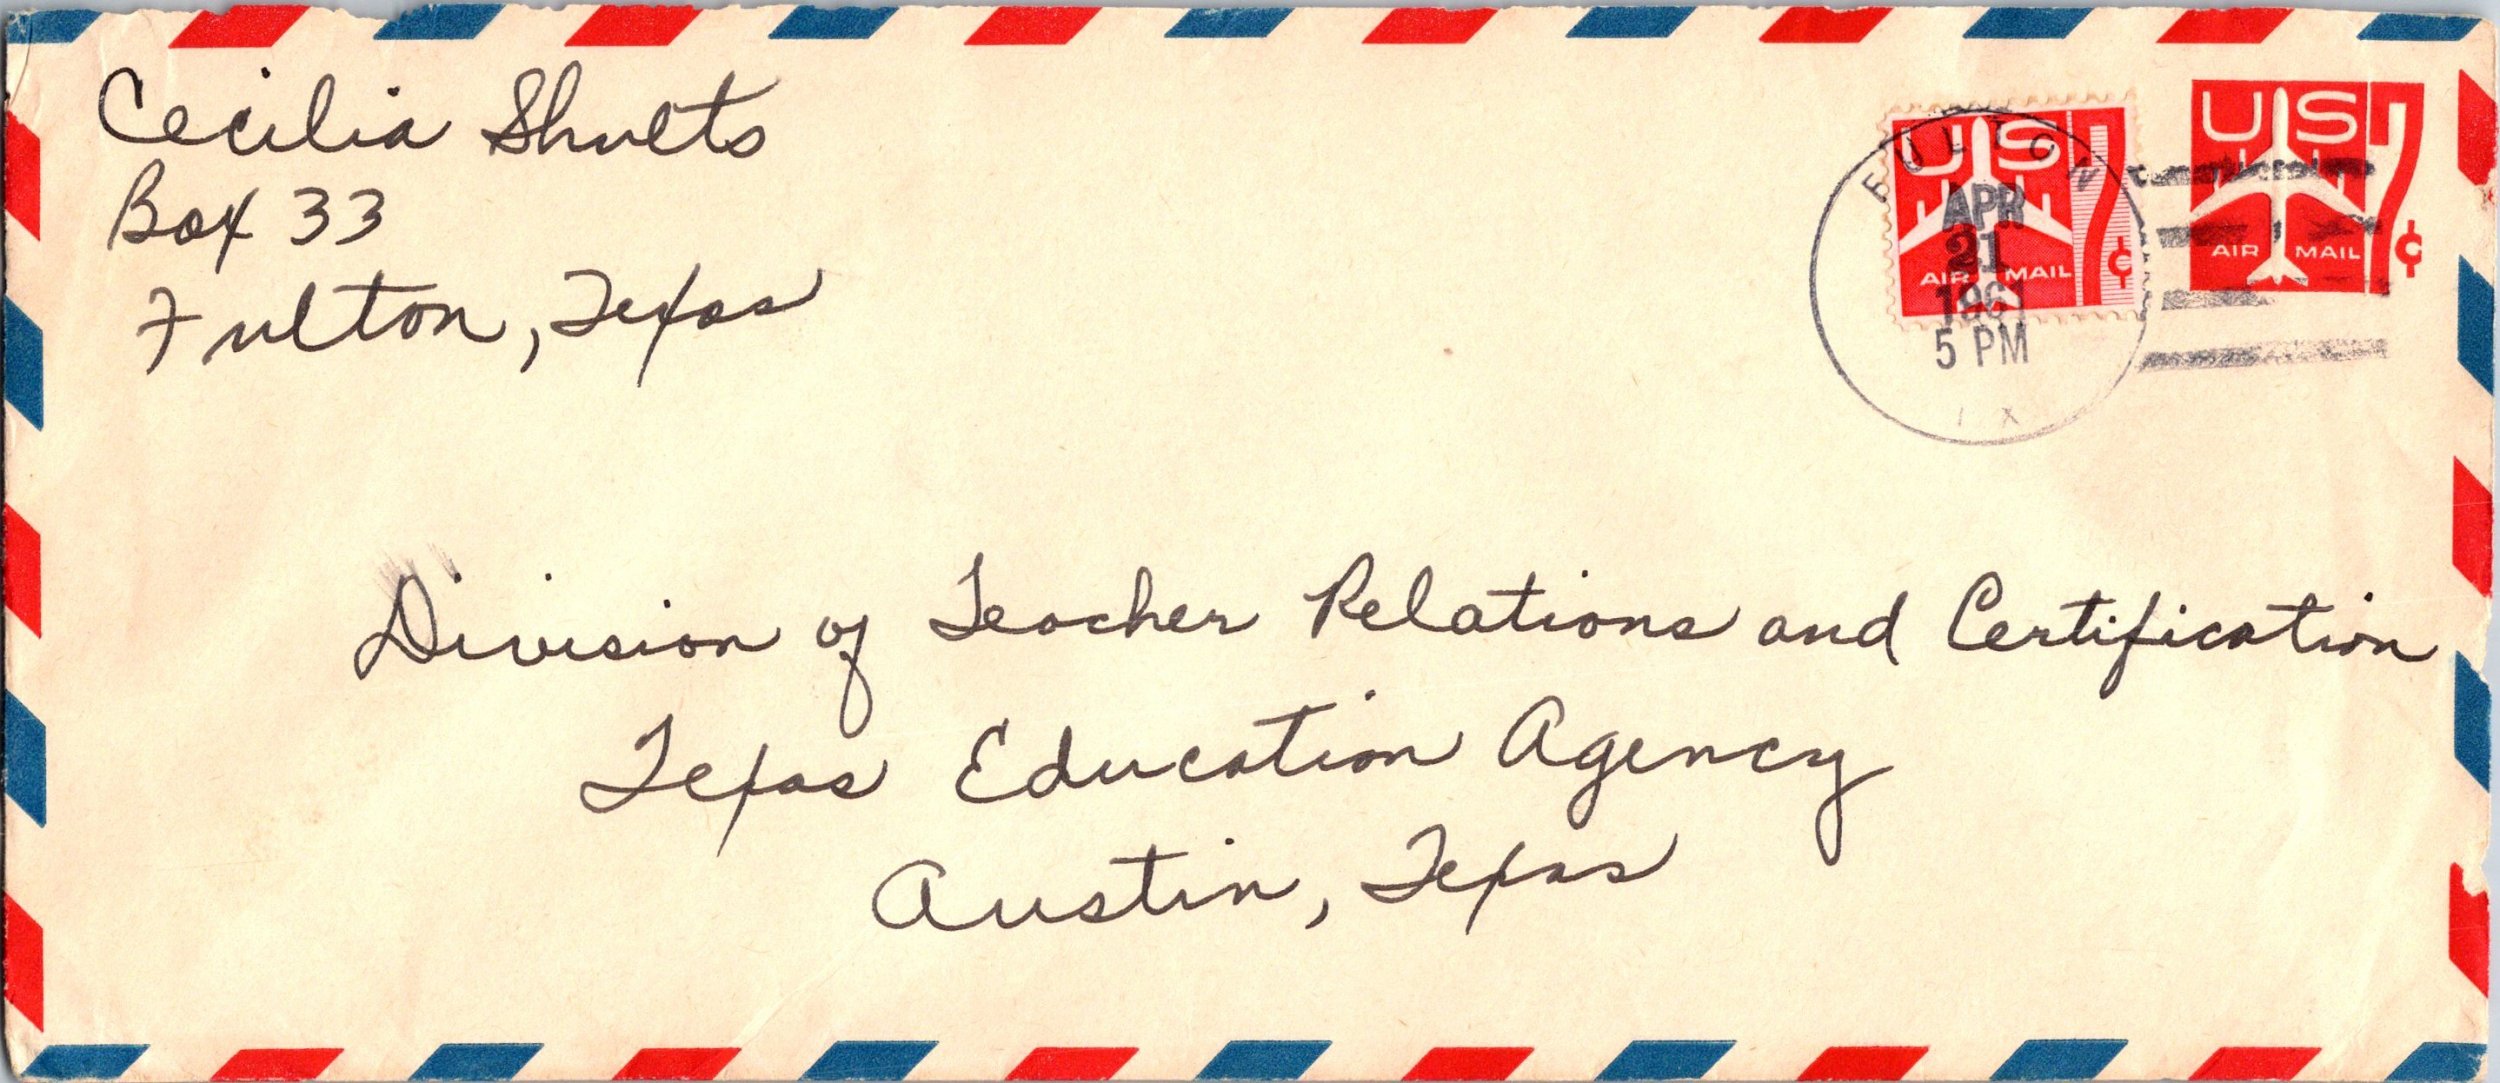 Cecilia Shults
Box 33
Fulton, Texas
FULTON
APR
21
1961
5 PM
TX
US 7¢
AIR MAIL
US 7¢
AIR MAIL
Division of Teacher Relations and Certification
Texas Education Agency
Austin, Texas